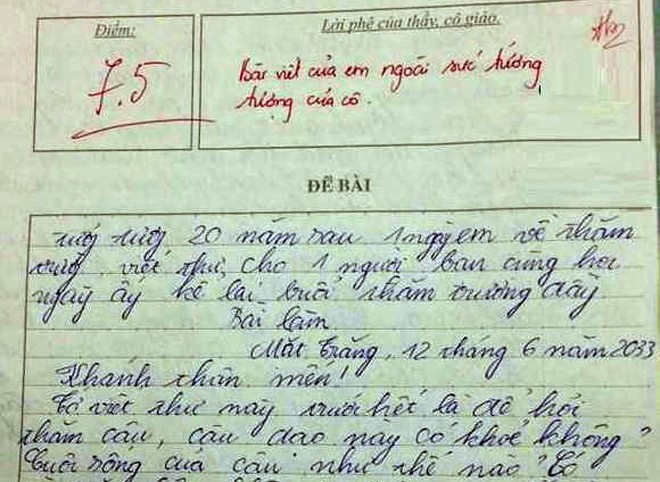 Điểm:
7.5
Lời phê của thầy, cô giáo.
Bài viết của em ngoài sức tưởng
tượng của cô.
ĐỀ BÀI
20 năm sau 1 ngày em về thăm
trường, viết thư, cho 1 người bạn cùng học
ngày ấy kể lại buổi thăm trường đầy
Bài làm
Mặt trăng, 12 tháng 6 năm 2033
Khanh thân mến!
Tớ viết thư này trước hết là để hỏi
thăm cậu, cậu dạo này có khoẻ không?
Cuộc sống của cậu như thế nào? Có